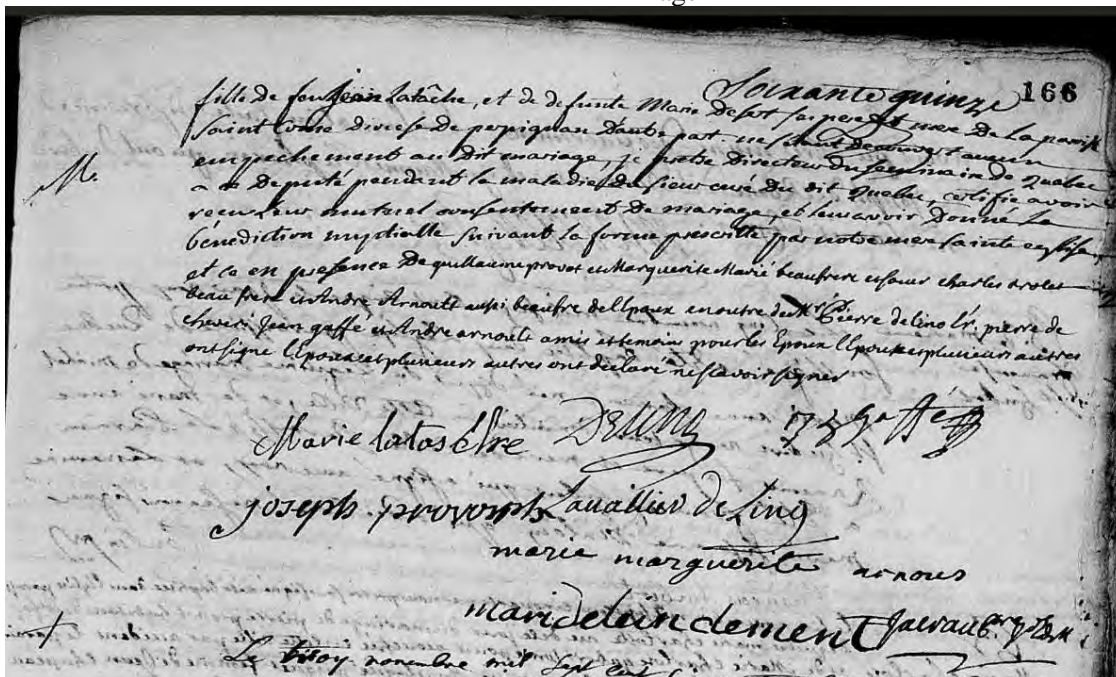 Soixante quinze 166
fille de feu Jean Latâche, et de defunte Marie Desort ses pere et mere de la paroisse
Saint Come Diocese de perpignan D'autre part ne s'étant decouvert aucun
M.
empechement au dit mariage, je prêtre Directeur du Seminaire de Quebec
a ce Deputé pendant la maladie du sieur curé du dit Quebec, certifie avoir
receu leur mutuel consentement de mariage, et leur avoir Donné La
bénédiction nuptialle suivant la forme prescritte par notre mere sainte eglise,
et ce en presence De guillaume provot et Marguerite Marié beaufrere et soeur charles
beau frere et Andre Arnoult aussi beaufre de l'Epoux en outre de Mr Pierre delino pierre de
Jean gaffé et Andre arnoult amis et temoins pour les Epoux L'Epouse et plusieurs autres
ont signé L'Epoux et plusieurs autres ont déclaré ne sçavoir signer
Marie latasche Delino Gaffé
joseph provomp Lavallier de Lino
marie marguerite arnous
clement
Le novembre mil sept cent